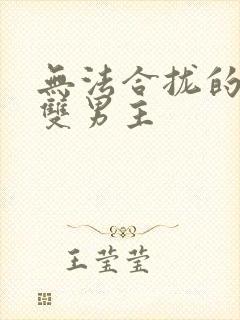 無法合拢的
雙男主
王莹莹